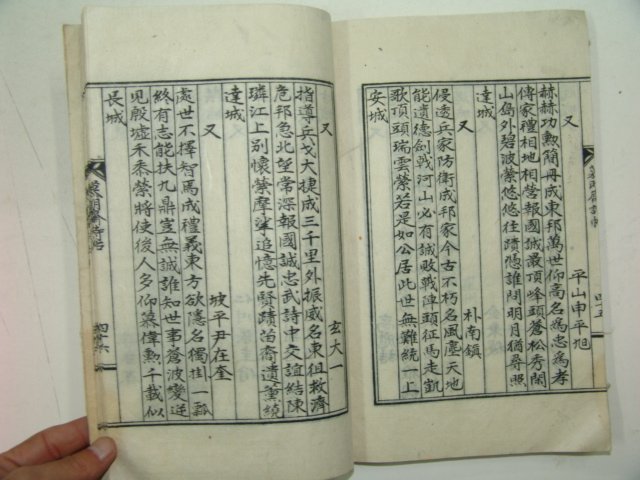 又
平山申平旭
赫赫功勲簡冊成東邦萬世仰高名爲忠爲孝
傳家禮相地相營報國誠最頂峰頭蒼松秀閣
山島外碧波縈悠悠往蹟憑誰問明月猶尋照
達城
又
朴南鎭
侵透兵家防衛成邦家今古不朽名風塵天地
能遺德劍戟河山必有誠敗戰陣頭征馬走凱
歌頂頭瑞雲縈若是如公居此世無難統一上
安城
又
玄大一
指導兵戈大捷成三千里外振威名東徂救濟
危邦急北望常深報國誠忠武詩中交誼結陳
璘江上別懷縈摩挲追憶先賢蹟苗裔遺薰繞
達城
又
坡平尹在奎
處世不擇智爲成禮義東方欲隱名獨掛一瓢
終有志能扶九鼎豈無誠誰知世事蒼波變逆
見殷墟禾黍縈將使後人多仰慕偉勲千載似
長城